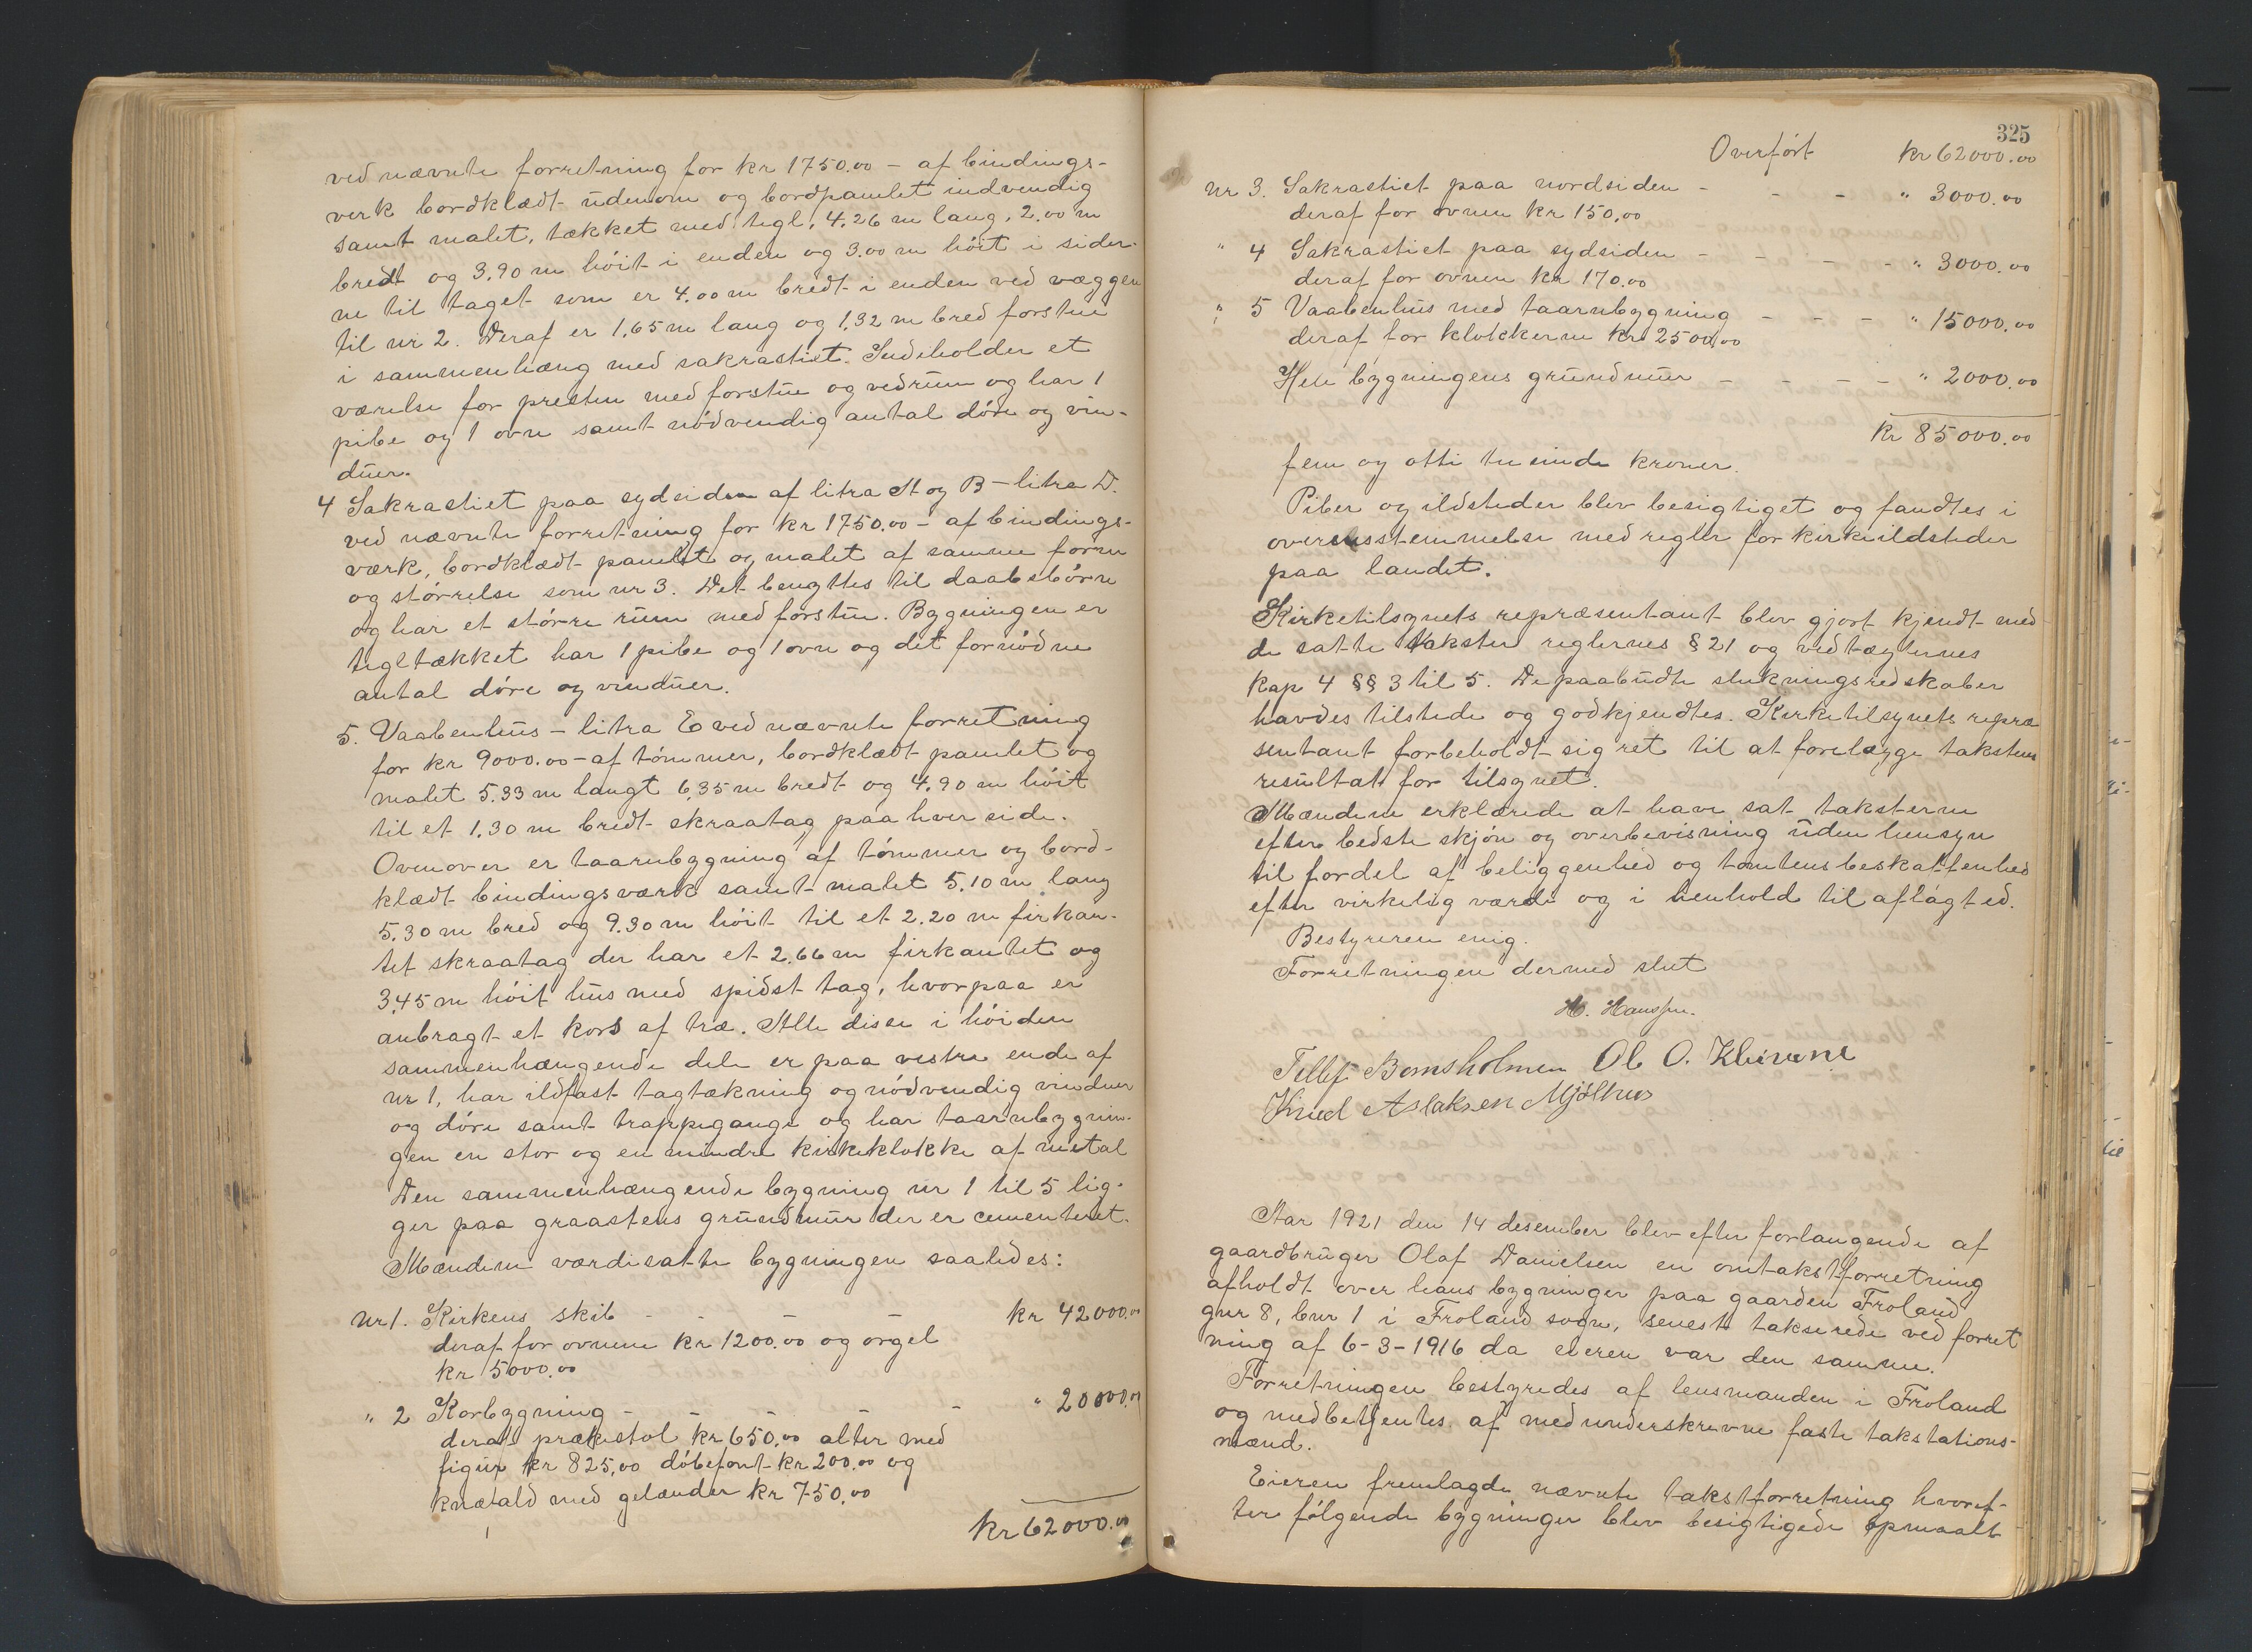 ved nævnte forretning for kr 1750.00 – af bindings-
verk bordklædt udenom og bordpanlet indvendig
samt malet, tækket med tegl, 4.26 m lang, 2.00 m
bredt og 3.90 m höit i enden og 3.00 m höit i sider-
ne til taget som er 4.00 m bredt i enden ved væggen
til nr 2. Deraf er 1.65 m lang og 1.32 m bred forstue
i sammenhæng med sakrastiet. Indeholder et
værelse for presten med forstue og vedrum og har 1
pibe og 1 ovn samt nödvendig antal döre og vin-
duer.
4 Sakrastiet paa sydsiden af litra A og B – litra D.
ved nævnte forretning for kr 1750.00 – af bindings-
værk, bordklædt panlet og malet af samme form
og störrelse som nr 3. Det benyttes til daabsbörn
og har et större rum med forstue. Bygningen er
tegltækket har 1 pibe og 1 ovn og det fornödne
antal döre og vinduer.
5. Vaabenhus – litra E ved nævnte forretning
for kr 9000.00 – af tömmer, bordklædt panlet og
malet 5.33 m langt 6,35 m bredt og 4.90 m höit
til et 1.30 m bredt skraatag paa hver side.
Ovenover er taarnbygning af tömmer og bord-
klædt bindingsværk samt malet 5.10 m lang
5.30 m bred og 9.30 m höit til et 2.20 m firkan-
tet skraatag der har et 2.66 m firkantet og
3,45 m höit hus med spidst tag, hvorpaa er
anbragt et kors af træ. Alle disse i höiden
sammenhængende dele er paa vestre ende af
nr 1, har ildfast tagtækning og nödvendig vinduer
og döre samt trappegange og har taarnbygnin-
gen en stor og en mindre kirkeklokke af metal
Den sammenhængende bygning nr 1 til 5 lig-
ger paa graastens grundmur der er cementeret.
Mændene værdisatte bygningen saaledes:
Nr 1. Kirkens skib - - - - kr 42000.00
deraf for ovnene kr 1200.00 og orgel
kr 5000.00
" 2 Korbygning - - - - " 20000.00
deraf prækestol kr 650.00 alter med
figur kr 825,00 döbefont kr 200.00 og
knæfald med gelænder kr 750.00
kr 62000.00
325
Overfört kr 62000.00
Nr 3. Sakrastiet paa nordsiden - - - " 3000.00
deraf for ovnen kr 150.00
" 4 Sakrastiet paa sydsiden - - - - " 3000.00
deraf for ovnen kr 170.00
" 5 Vaabenhus med taarnbygning - - - " 15000.00
deraf for klokkerne kr 2500,00
Hele bygningens grundmur - - - - " 2000.00
kr 85000.00
fem og otti tusinde kroner.
Piber og ildsteder blev besigtiget og fandtes i
overensstemmelse med regler for kirkeildsteder
paa landet.
Kirketilsynets repræsentant blev gjort kjendt med
de satte takster reglernes § 21 og vedtægternes
kap 4 §§ 3 til 5. De paabudte slukningsredskaber
havdes tilstede og godkjendtes. Kirketilsynets repræ
sentant forbeholdt sig ret til at forelægge takstens
resultat for tilsynet.
Mændene erklærede at have sat taksterne
efter bedste skjön og overbevisning uden hensyn
til fordel af beliggenhed og tomtens beskaffenhed
efter virkelig værdi og i henhold til aflagt ed.
Bestyreren enig.
Forretningen dermed slut
H. Hanssen.
Tellef Bomsholmen Ol. O. Klevene
Knud Aslaksen Mjölhus
Aar 1921 den 14 desember blev efter forlangende af
gaardbruger Olaf Danielsen en omtakstforretning
afholdt over hans bygninger paa gaarden Froland
gnr 8, bnr 1 i Froland sogn, senest takserede ved forret
ning af 6-3-1916 da eieren var den samme.
Forretningen bestyredes af lensmanden i Froland
og medbetjentes af medunderskrevne faste takstations-
mænd.
Eieren fremlagde nævnte takstforretning hvoref-
ter fölgende bygninger blev besigtigede opmaalt